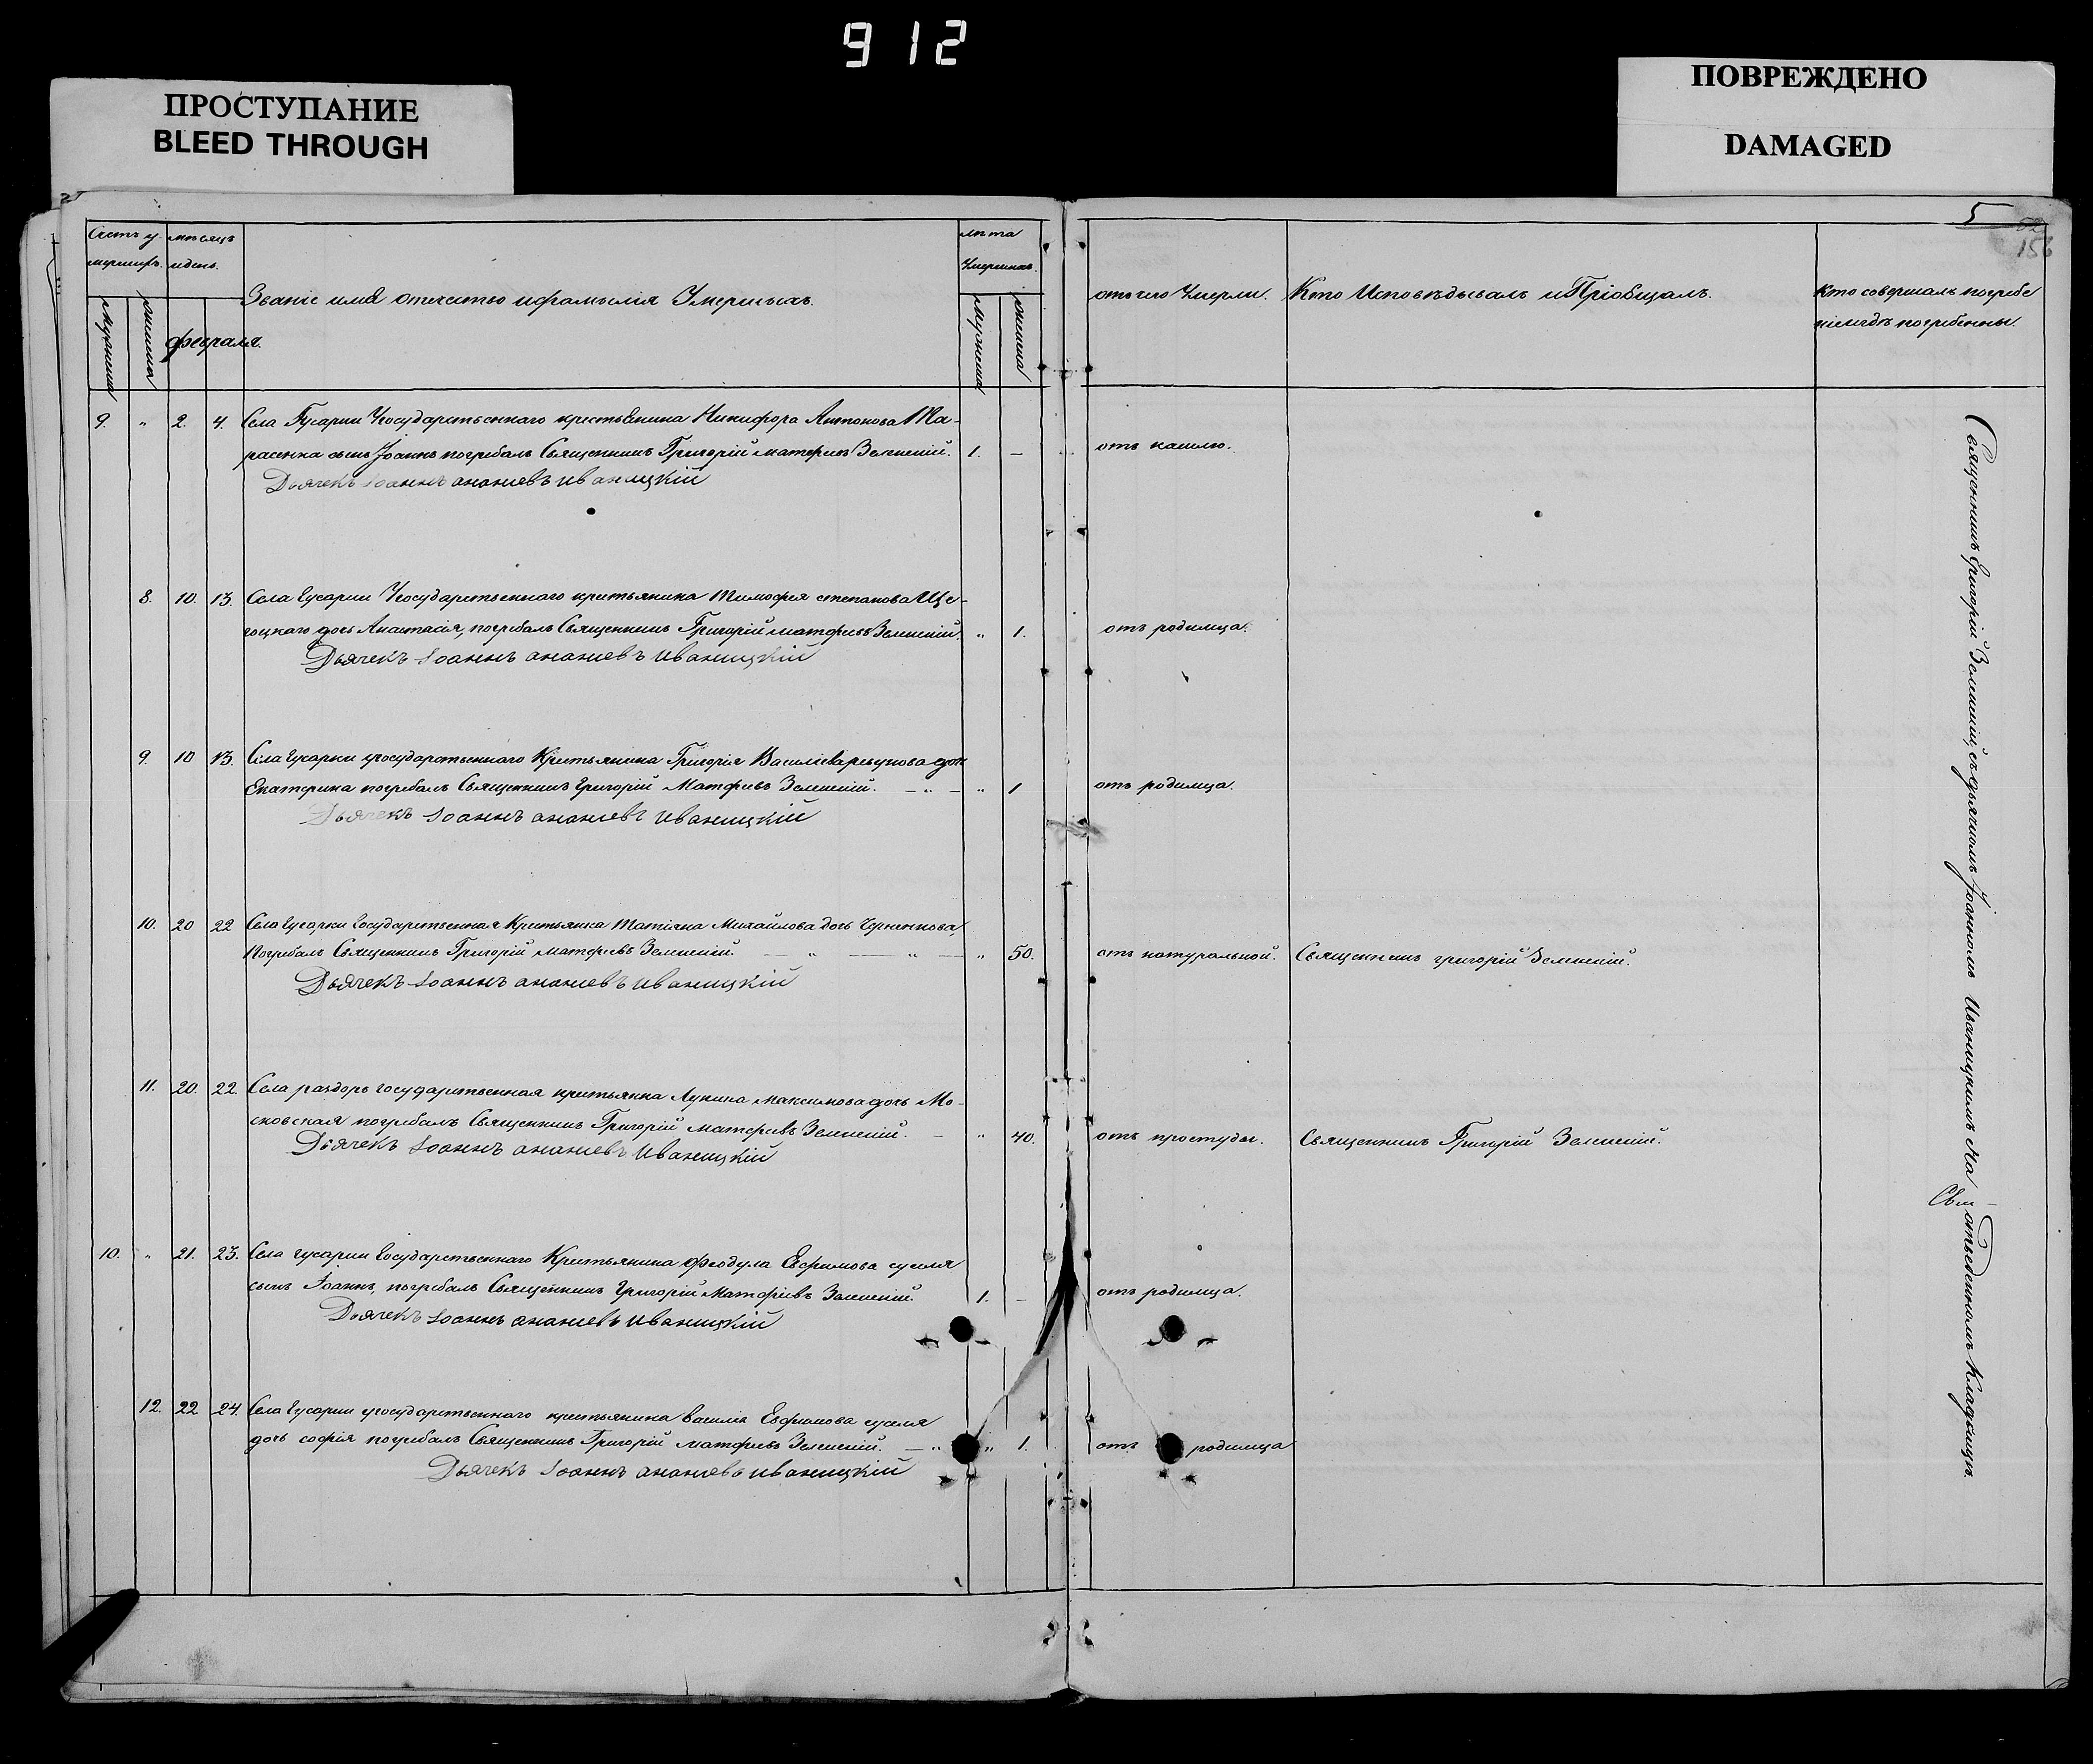 912
ПРОСТУПАНИЕ
BLEED THROUGH
ПОВРЕЖДЕНО
DAMAGED
5
Счетъ у-
мершихъ.
мѣсяцъ
и день.
Званіе имя отечество и фамилія Умершихъ.
лѣта
Умершихъ.
мужеска
женска
февраля.
мужеска
женска
отъ чего Умерли.
Кто Исповѣдывалъ и Пріобщалъ.
Кто совершалъ погребе
ніе и гдѣ погребенны.
9. " 2. 4. Села Гусарки Государственнаго крестьянина Никифора Антонова Та-
расенка сынъ Іоаннъ погребалъ Священникъ Григорій матфеевъ Зеленскій. 1. — отъ кашлю.
Дьячекъ Іоаннъ ананиевъ иваницкій
8. 10. 13. Села Гусарки Государственнаго крестьянина Тимофея степанова Ще-
гоцкаго дочь Анастасія, погребалъ Священникъ Григорій матфеевъ Зеленскій. " 1. отъ родимца.
Дьячекъ Іоаннъ ананиевъ иваницкій
9. 10 13. Села Гусарки государственнаго Крестьянина Григорія Василіева дочь
Екатерина погребалъ Священникъ Григорій Матфеевъ Зеленскій. — " — " 1 отъ родимца.
Дьячекъ Іоаннъ ананиевъ иваницкій
10. 20 22 Села Гусарки Государственная Крестьянка Татіяна Михайлова дочь
Погребалъ Священникъ Григорій матфеевъ Зеленскій. — " — " — " 50. отъ натуральной. Священникъ григорій Зеленскій.
Дьячекъ Іоаннъ ананиевъ иваницкій
11. 20. 22. Села раздоръ государственная крестьянка Лукина максимова дочь Мо-
сковская погребалъ Священникъ Григорій матфеевъ Зеленскій. — " 40. отъ простуды. Священникъ Григорій Зеленскій.
Дьячекъ Іоаннъ ананиевъ Иваницкій
10. " 21. 23. Села гусарки Государственнаго Крестьянина Феодула Евфимова сусля
сынъ Іоаннъ, погребалъ Священникъ Григорій Матфеевъ Зеленскій. 1. — отъ родимца.
Дьячекъ Іоаннъ ананиевъ иваницкій
12. 22 24. Села Гусарки государственнаго крестьянина василія Евфимова сусля
дочь софія погребалъ Священникъ Григорій матфеевъ Зеленскій. — " " 1. отъ родимца
Дьячекъ Іоаннъ ананиевъ иваницкій
Священникъ Григорій Зеленскій, съ дьячкомъ Іоанномъ Иваницкимъ На
отведенномъ Кладбищѣ.